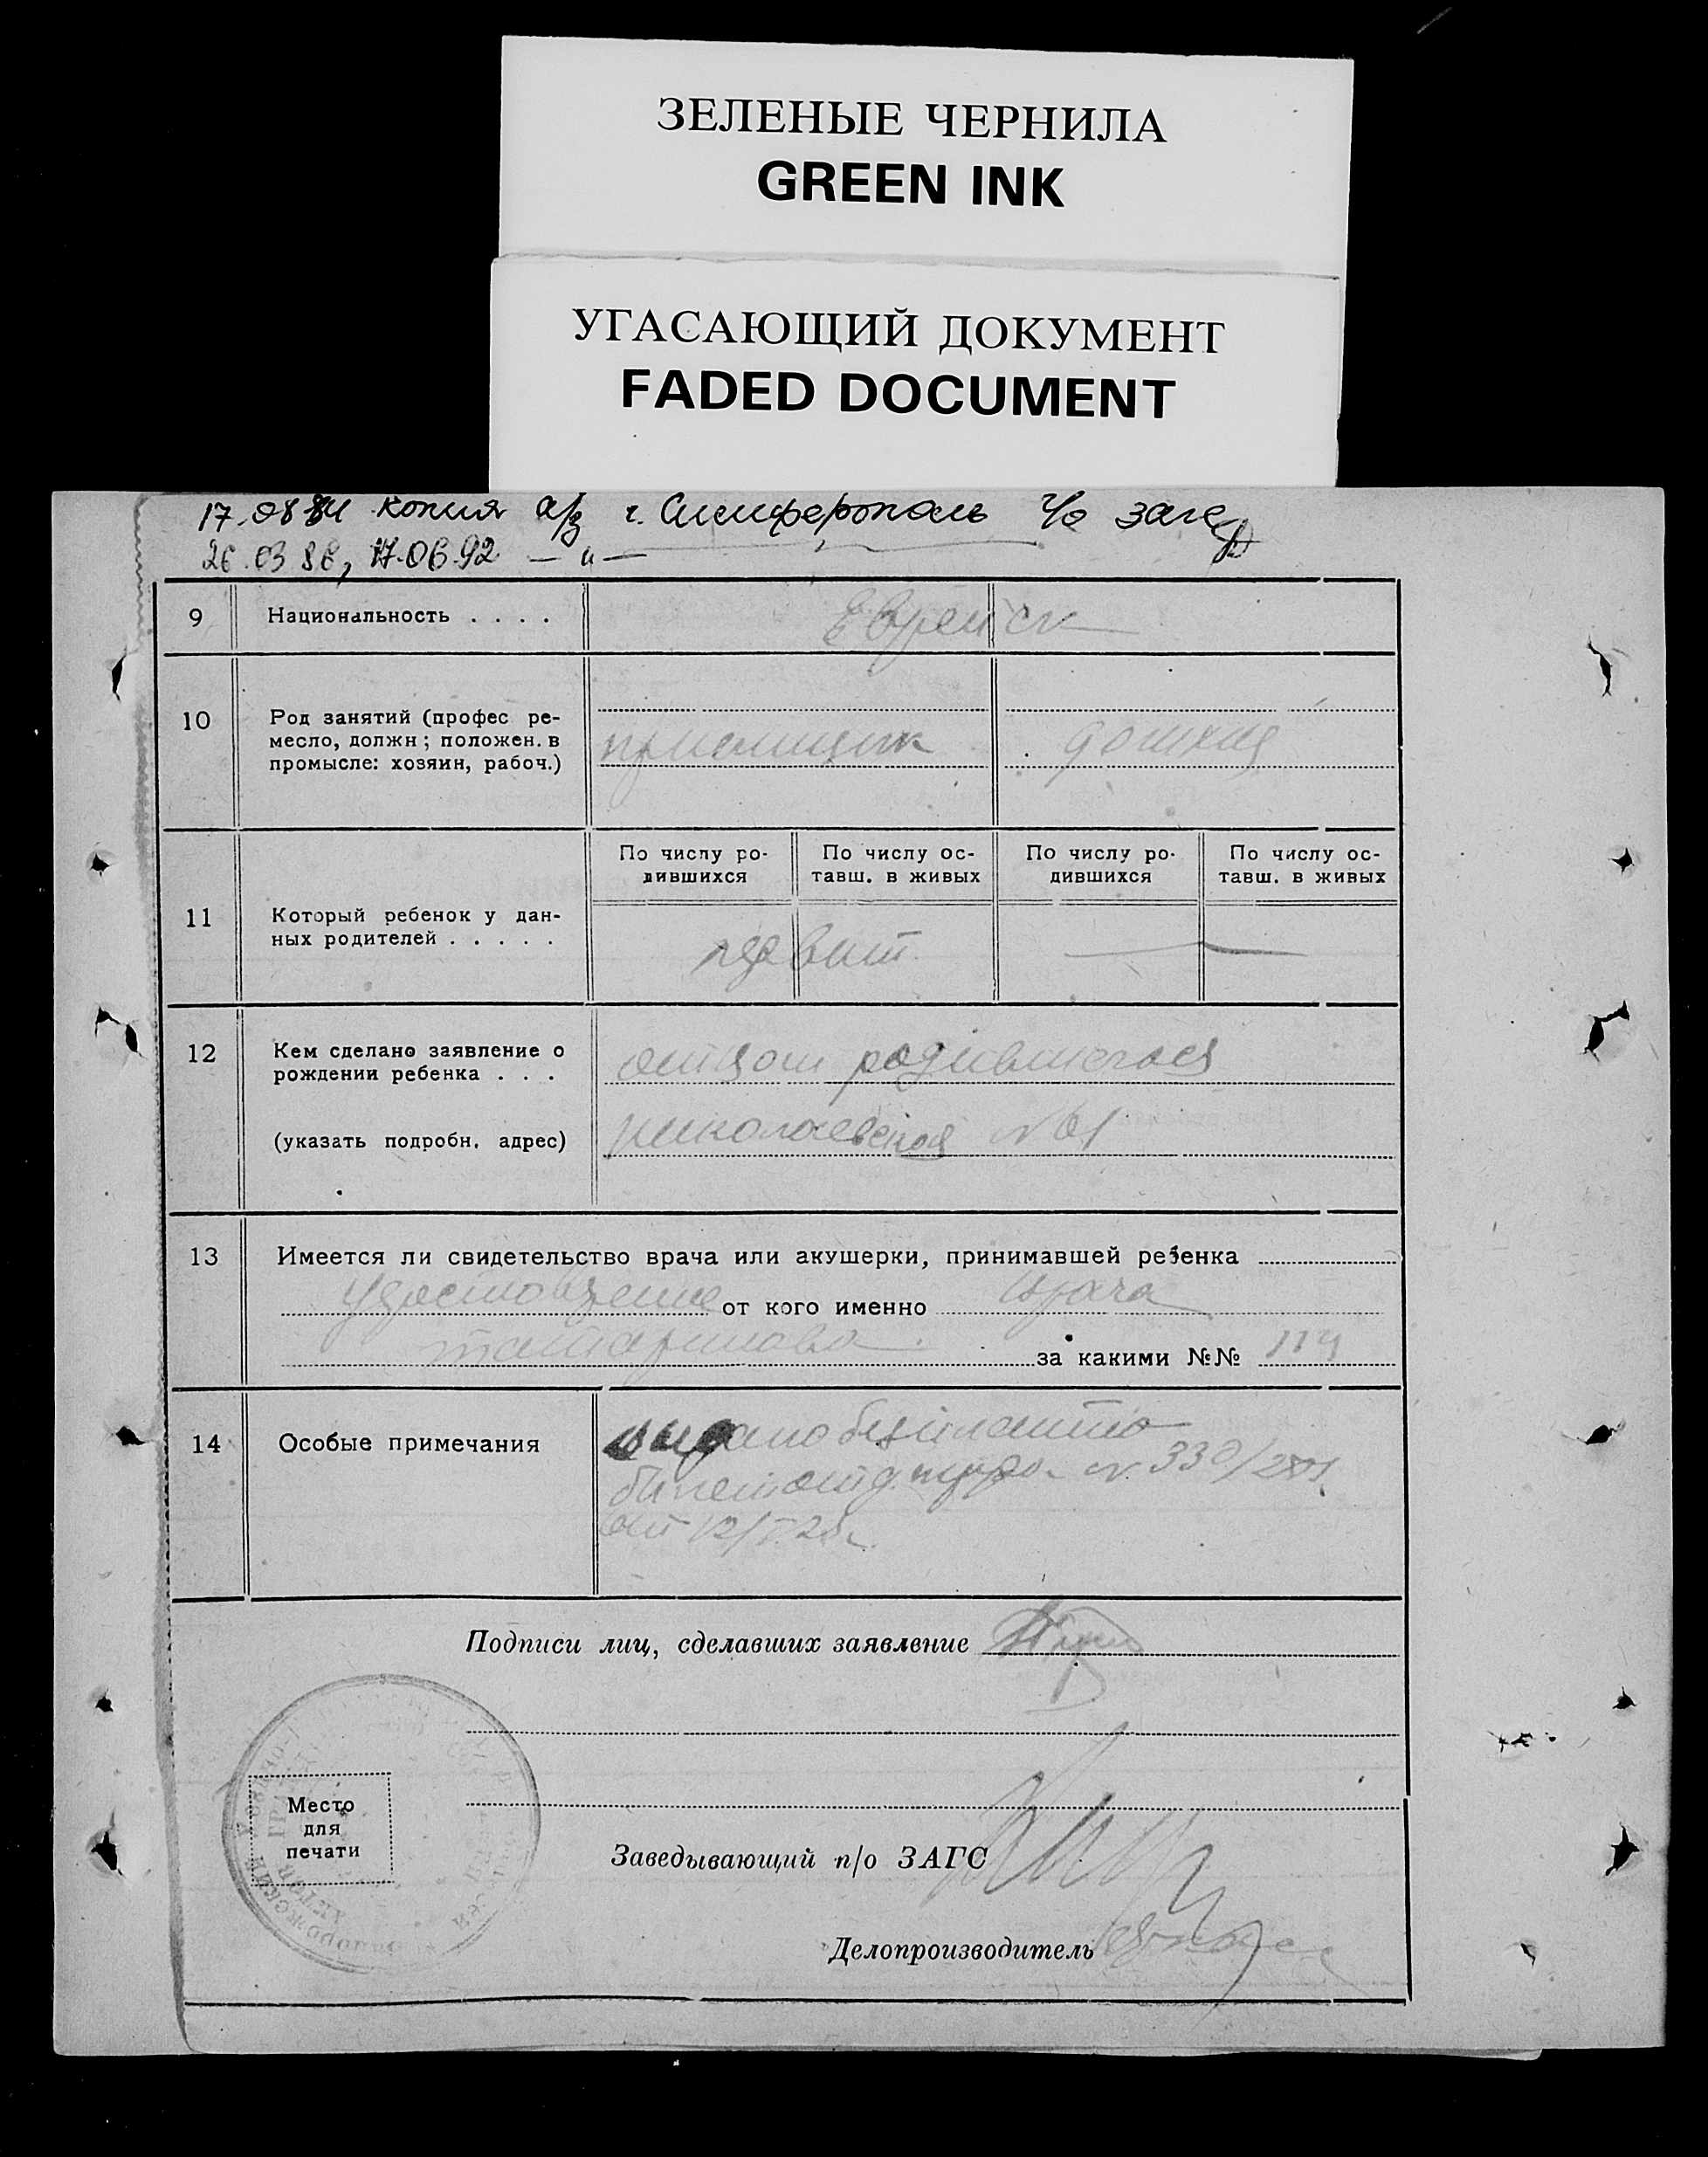 ЗЕЛЕНЫЕ ЧЕРНИЛА
GREEN INK
УГАСАЮЩИЙ ДОКУМЕНТ
FADED DOCUMENT
17.08.84 копия а/з г. Симферополь ч/о загс
26.03.86, 17.06.92 — " —
9 Национальность . . . . Еврейск
10 Род занятий (профес ре-
месло, должн; положен. в
промысле: хозяин, рабоч.)
приемщик домхоз
По числу ро-
дившихся
По числу ос-
тавш. в живых
По числу ро-
дившихся
По числу ос-
тавш. в живых
11 Который ребенок у дан-
ных родителей . . . . .
первый — —
12 Кем сделано заявление о
рождении ребенка . . .
отцом родившегося
(указать подробн. адрес) николаевская
13 Имеется ли свидетельство врача или акушерки, принимавшей ребенка
удостоверение от кого именно врача
татаринова за какими №№ 114
14 Особые примечания
выдано бесплатно
билет № 330/
от
Подписи лиц, сделавших заявление
Место
для
печати
Заведывающий п/о ЗАГС
Делопроизводитель